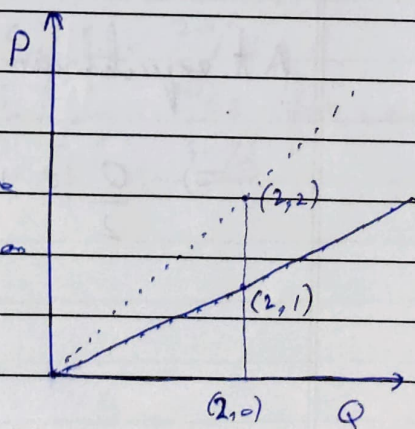 P
(2,2)
(2,1)
(2,0)
Q